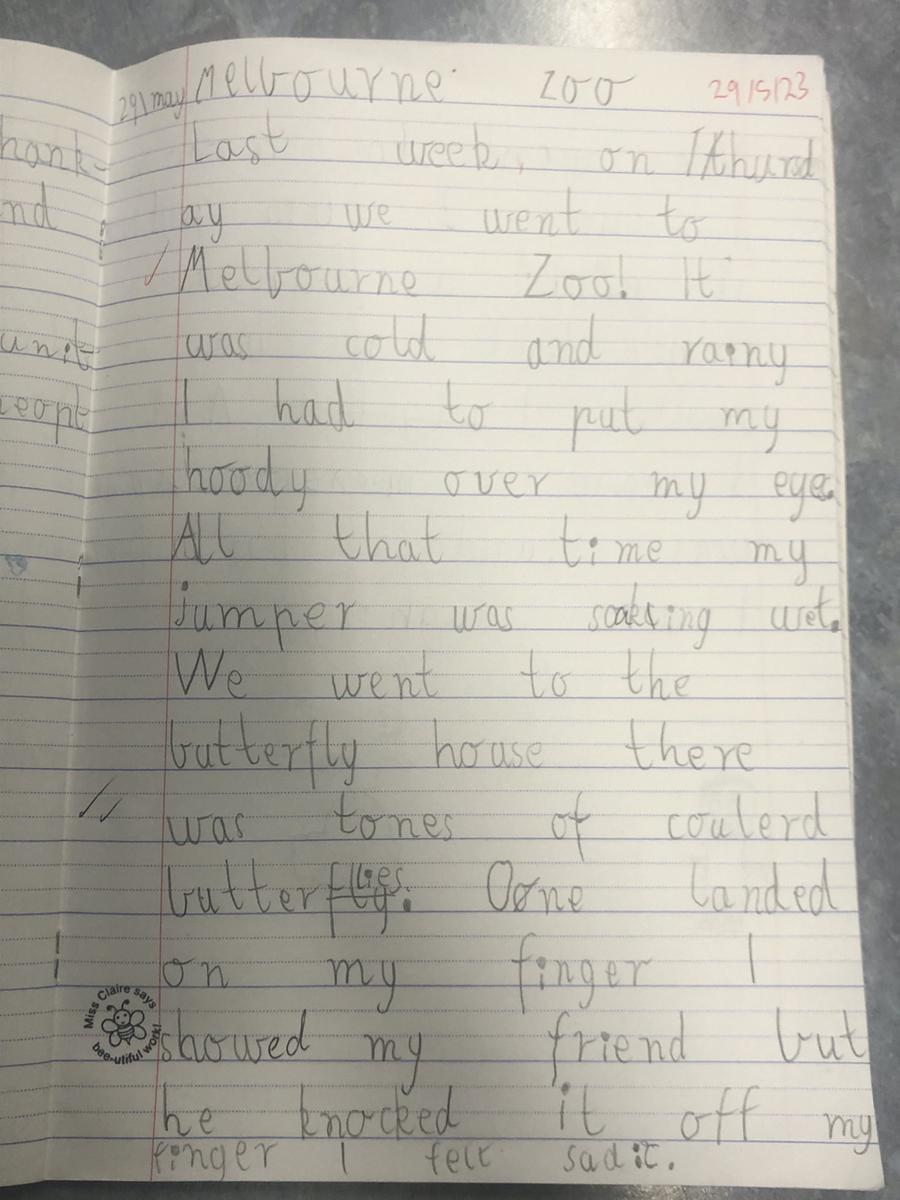 hank-
nd
unit
29\ may Melbourne Zoo 29/5/23
Last week, on thurd
ay we went to
Melbourne Zoo! It
was cold and rainy
I had to put my
hoody over my eyes.
All that time my
jumper was soaking wet.
We went to the
butterfly house there
was tones of coulerd
butterflies. One landed
on my finger I
showed my friend but
he knocked it off my
finger I felt sad it.
Miss Claire says
bee-utiful work!